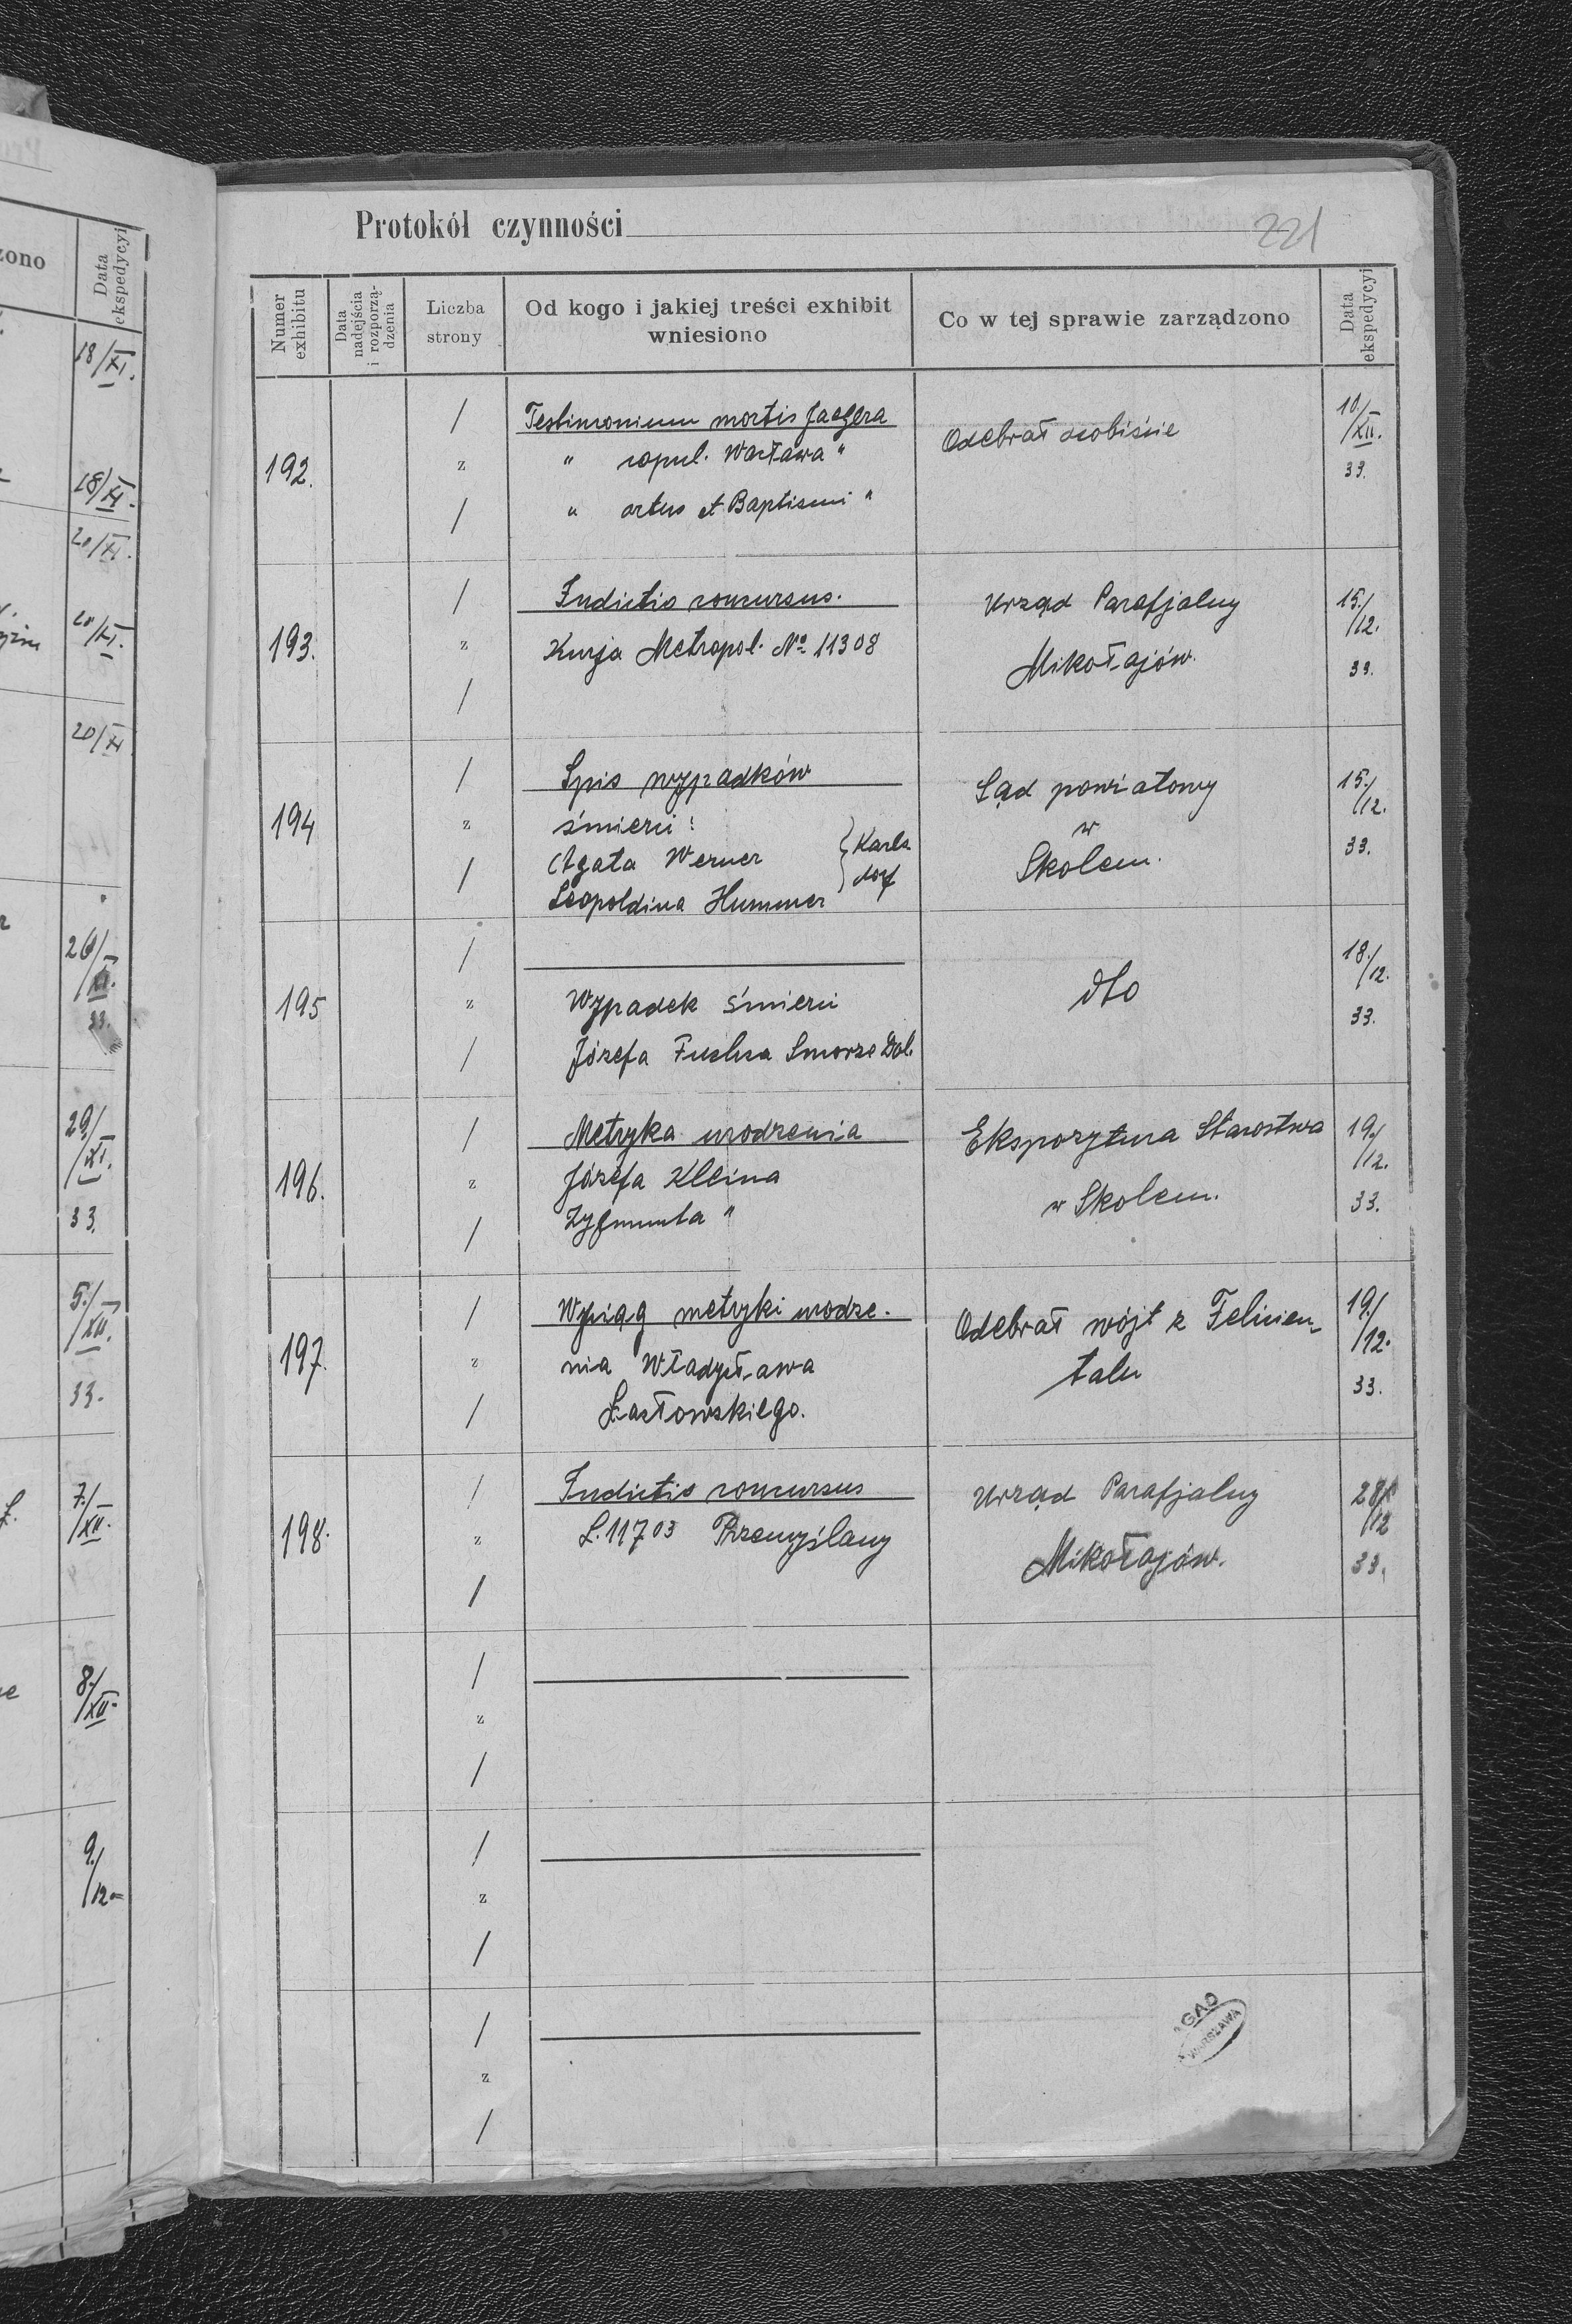 zono
Data
ekspedycyi
18/XI.
18/XI.
20/XI.
20/XI.
20/XI
26/XI.
33.
29/XI.
33.
5./XII.
33.
7./XII.
8./XII.
9./12
Protokół czynności
221
Numer exhibitu
Data nadejścia i rozporządzenia
Liczba strony
Od kogo i jakiej treści exhibit wniesiono
Co w tej sprawie zarządzono
Data ekspedycyi
192.
/ z /
Testimonium mortis Jaegera
" copul. Wacława "
" ortus et Baptismi "
Odebrał osobiście
10./XII.
33.
193.
/ z /
Indictio concursus.
Kurja Metropol. No 11308
Urząd Parafjalny
Mikołajów.
15./12.
33.
194
/ z /
Spis wypadków
śmierci:
Agata Werner
Leopoldina Hummer
} Karls
dorf
Sąd powiatowy
w
Skolem.
15./12.
33.
195
/ z /
Wypadek śmierci
Józefa Fuchsa Smorze Dol.
dto
18./12.
33.
196.
/ z /
Metryka urodzenia
Józefa Kleina
Zygmunta "
Ekspozytura Starostwa
w Skolem.
19./12.
33.
197.
/ z /
Wyciąg metryki urodze-
nia Władysława
Laszłowskiego.
Odebrał wójt z Felicien-
talu
19./12.
33.
198.
/ z /
Indictio concursus
L.11703 Przemyślany
Urząd Parafjalny
Mikołajów.
28/12
33.
/ z /
/ z /
/ z /
AGAD
WARSZAWA